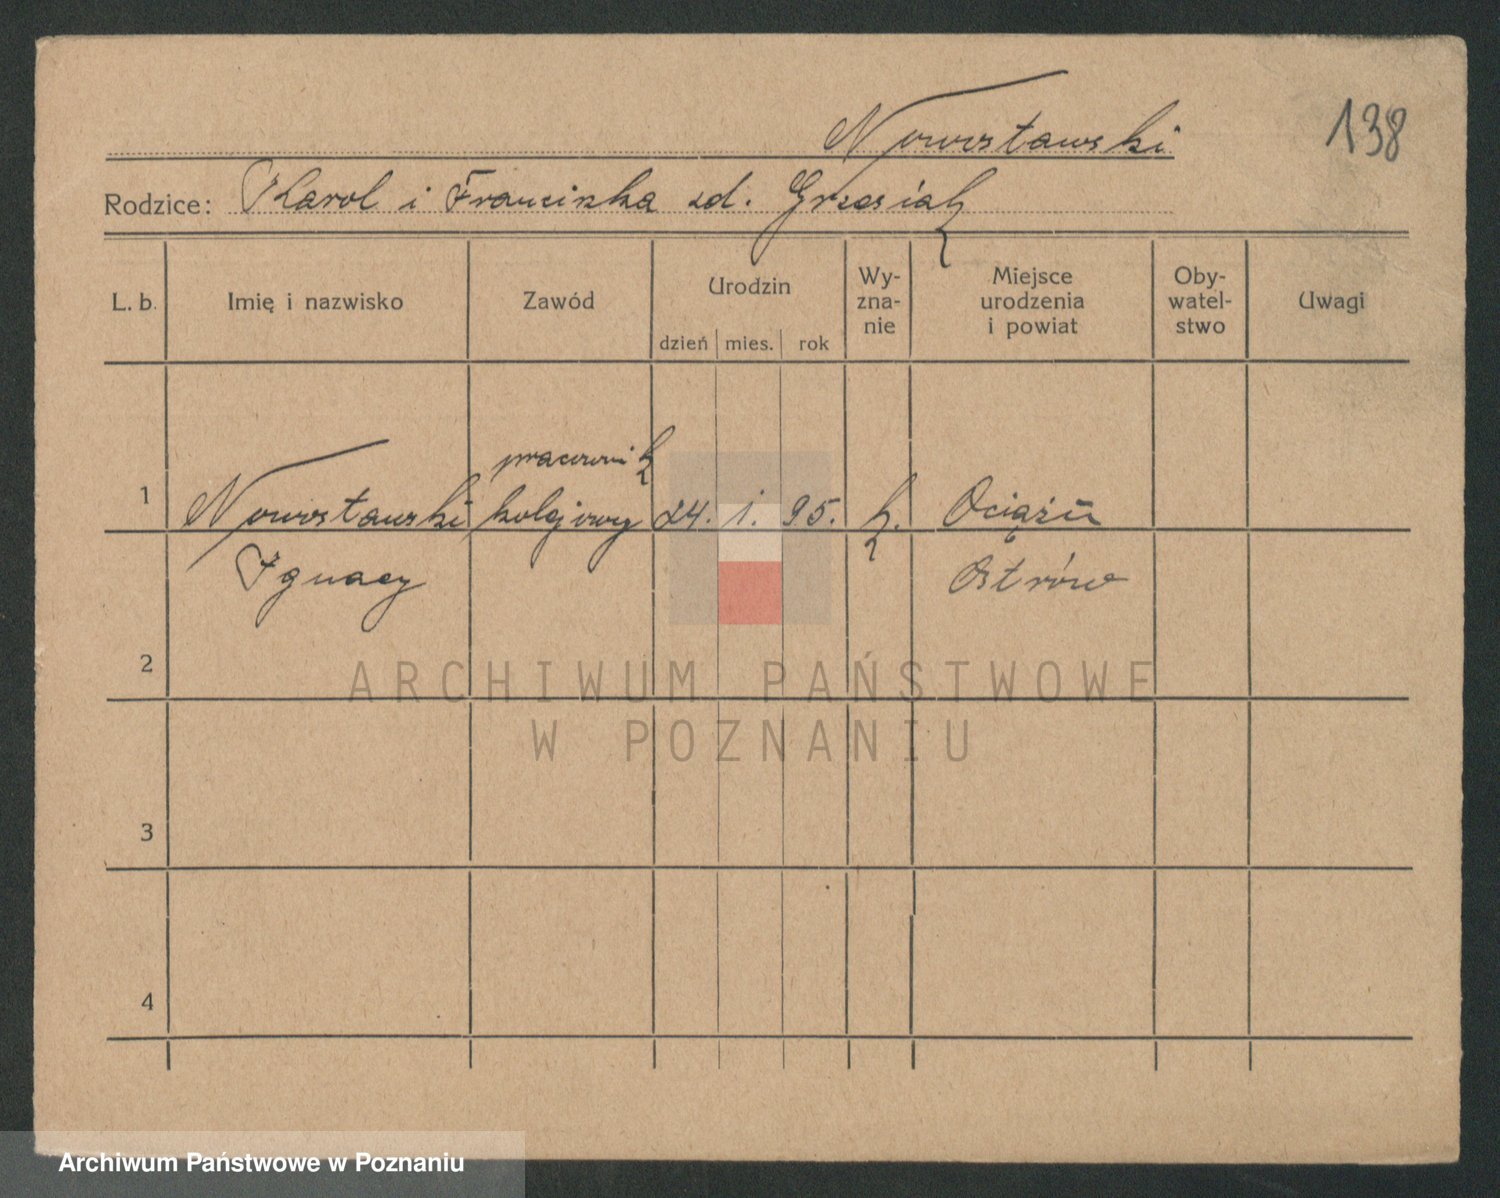 Nowostawski
138
Rodzice: Karol i Franciszka zd. Grzesiak
L. b. Imię i nazwisko Zawód Urodzin dzień mies. rok Wy-zna-nie Miejsce urodzenia i powiat Oby-watel-stwo Uwagi
pracownik
1 Nowostawski kolejowy 24. 1. 95. k. Ociąż
Ignacy Ostrów
2
ARCHIWUM PAŃSTWOWE
W POZNANIU
3
4
Archiwum Państwowe w Poznaniu